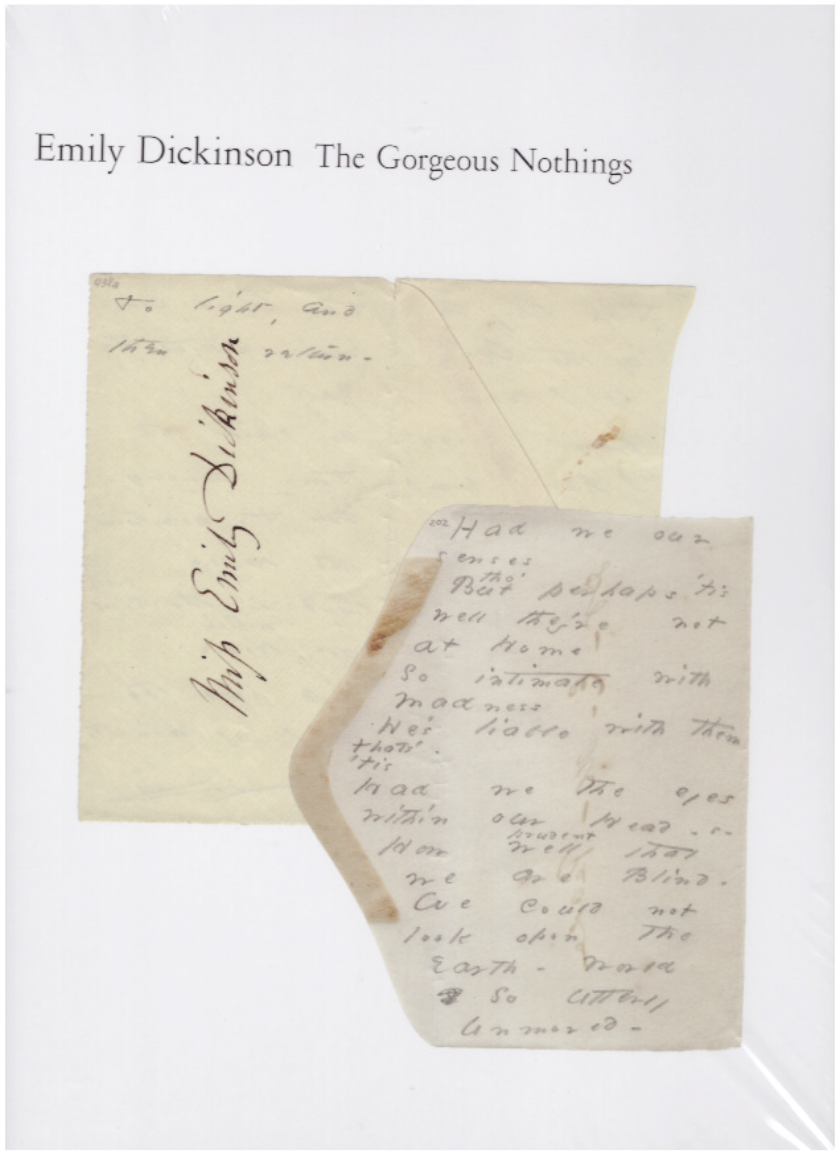 Emily Dickinson The Gorgeous Nothings
To light, and
then return -
Miss Emily Dickinson
202
Had we our
senses
tho'
But perhaps 'tis
well they're not
at Home
So intimate with
Madness
He's liable with them
that's
'tis
Had we the eyes
within our Head - s -
prudent
How well that
we are Blind -
We could not
look opon the
Earth - World
So utterly
unmoved -